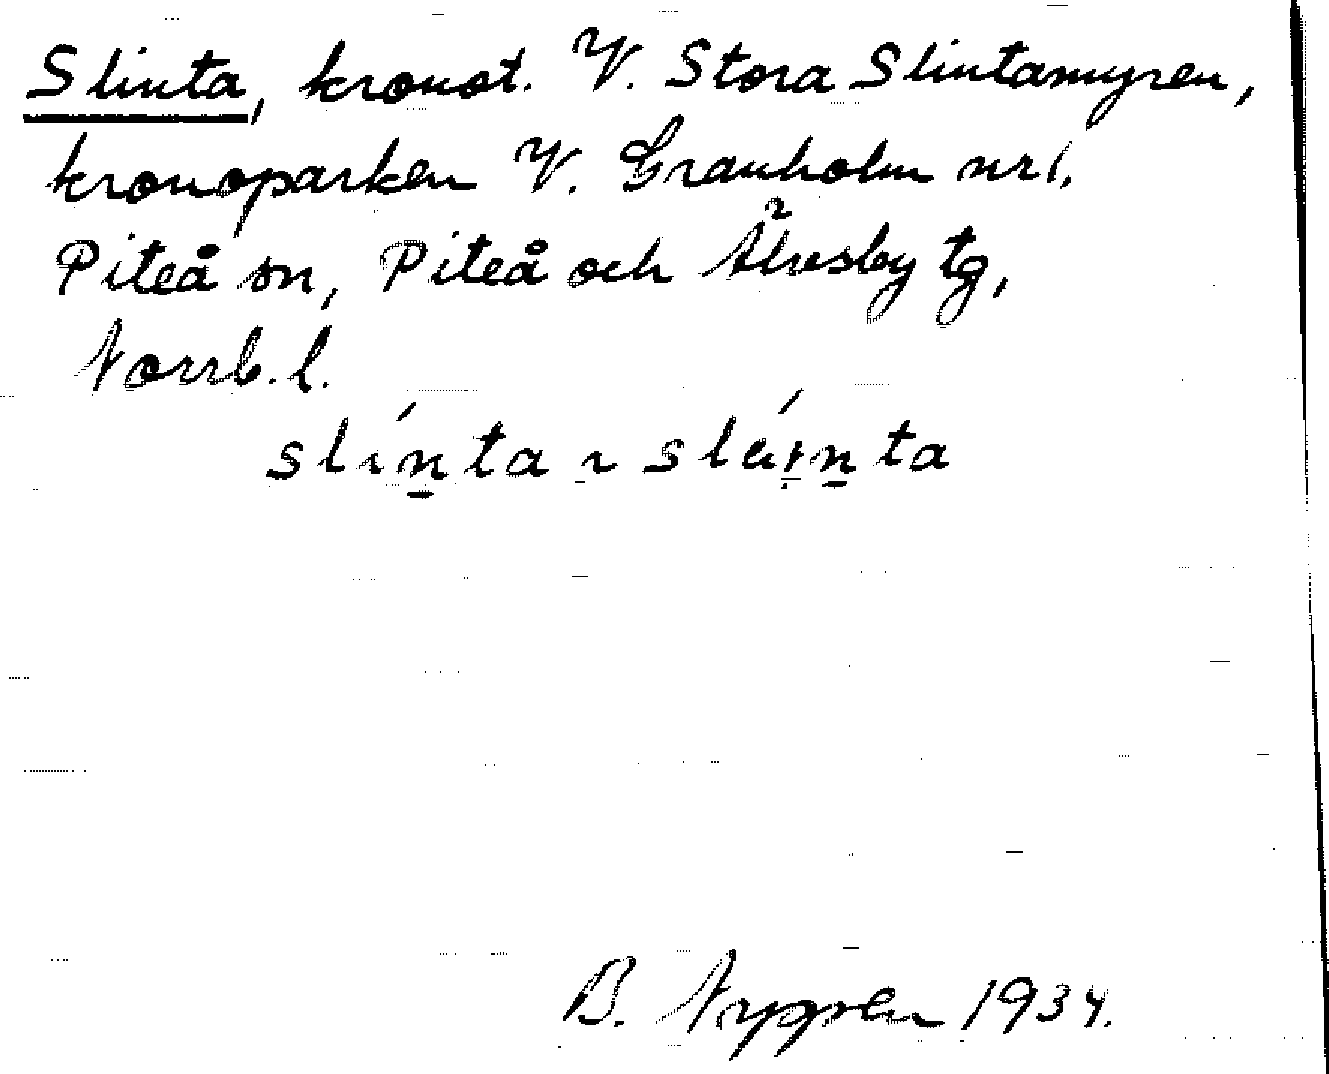 Slinta, kronot. V. Stora Slintamyren,
kronoparken V. Granholm nr 1,
Piteå sn, Piteå och Älvsby tg,
Norrb. l.
slínta ~ sléi̯nta
B. Nygren 1934.